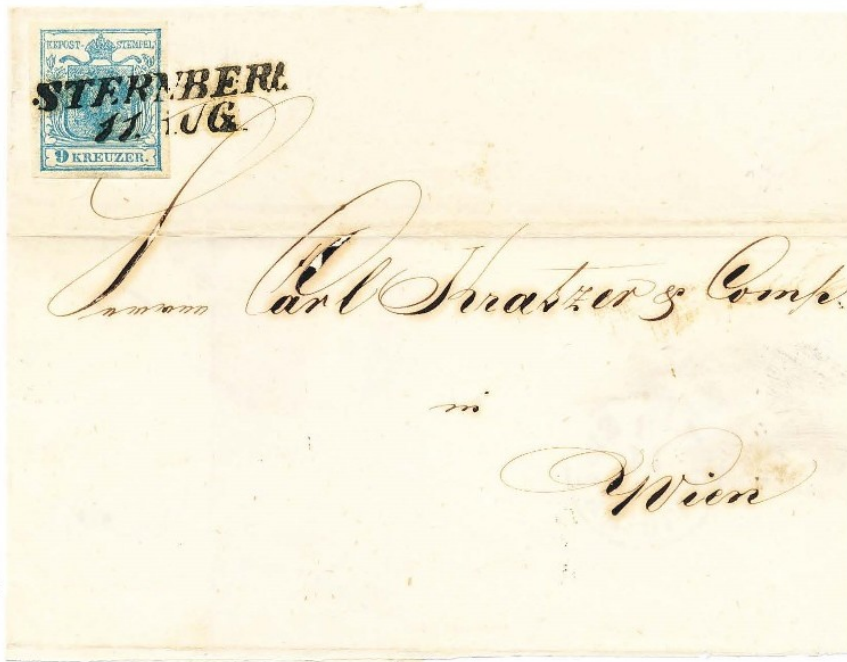 KKPOST-STEMPEL
STERNBERG.
11. AUG.
9 KREUZER.
Herren Carl Kratzer & Comp.
in
Wien